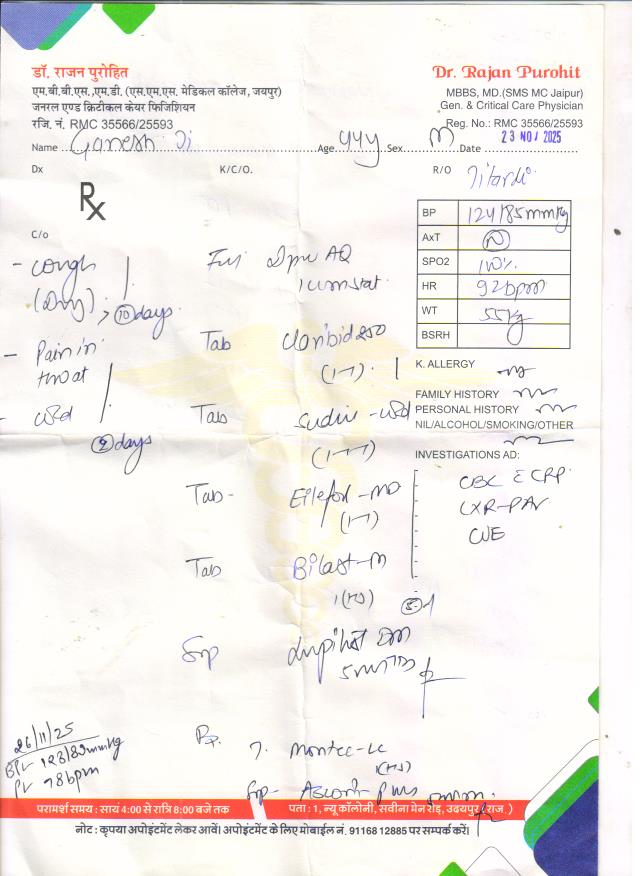 डॉ. राजन पुरोहित
एम.बी.बी.एस.,एम.डी. (एस.एम.एस. मेडिकल कॉलेज, जयपुर)
जनरल एण्ड क्रिटीकल केयर फिजिशियन
रजि. नं. RMC 35566/25593
Dr. Rajan Purohit
MBBS, MD.(SMS MC Jaipur)
Gen. & Critical Care Physician
Reg. No.: RMC 35566/25593
Name Ganesh Ji Age 44y Sex M Date 23 NOV 2025
Dx K/C/O. R/O
Rx
BP 124/85mmHg
AxT N
SPO2 100%
HR 92bpm
WT 55kg
BSRH
C/o
- cough
(Dry) > 10 days
- Pain in
throat
- cold
2 days
Inj Dpn AQ
1cc im stat.
Tab Claribid 250
Tab Sudin - cold
Tab-
Tab Bilast-M
1(HS) 5-d
Syp
K. ALLERGY
FAMILY HISTORY
PERSONAL HISTORY
NIL/ALCOHOL/SMOKING/OTHER
INVESTIGATIONS AD:
CBC CRP
CXR-PAV
CUE
26/11/25
BP 123/83mmHg
PR 78bpm
Rx. T. Montec-LC
1(HS)
Syp- Ascoril Plus 5ml
परामर्श समय : सायं 4:00 से रात्रि 8:00 बजे तक
पता : 1, न्यू कॉलोनी, सवीना मेन रोड़, उदयपुर (राज.)
नोट : कृपया अपोइंटमेंट लेकर आवें। अपोइंटमेंट के लिए मोबाईल नं. 91168 12885 पर सम्पर्क करें।